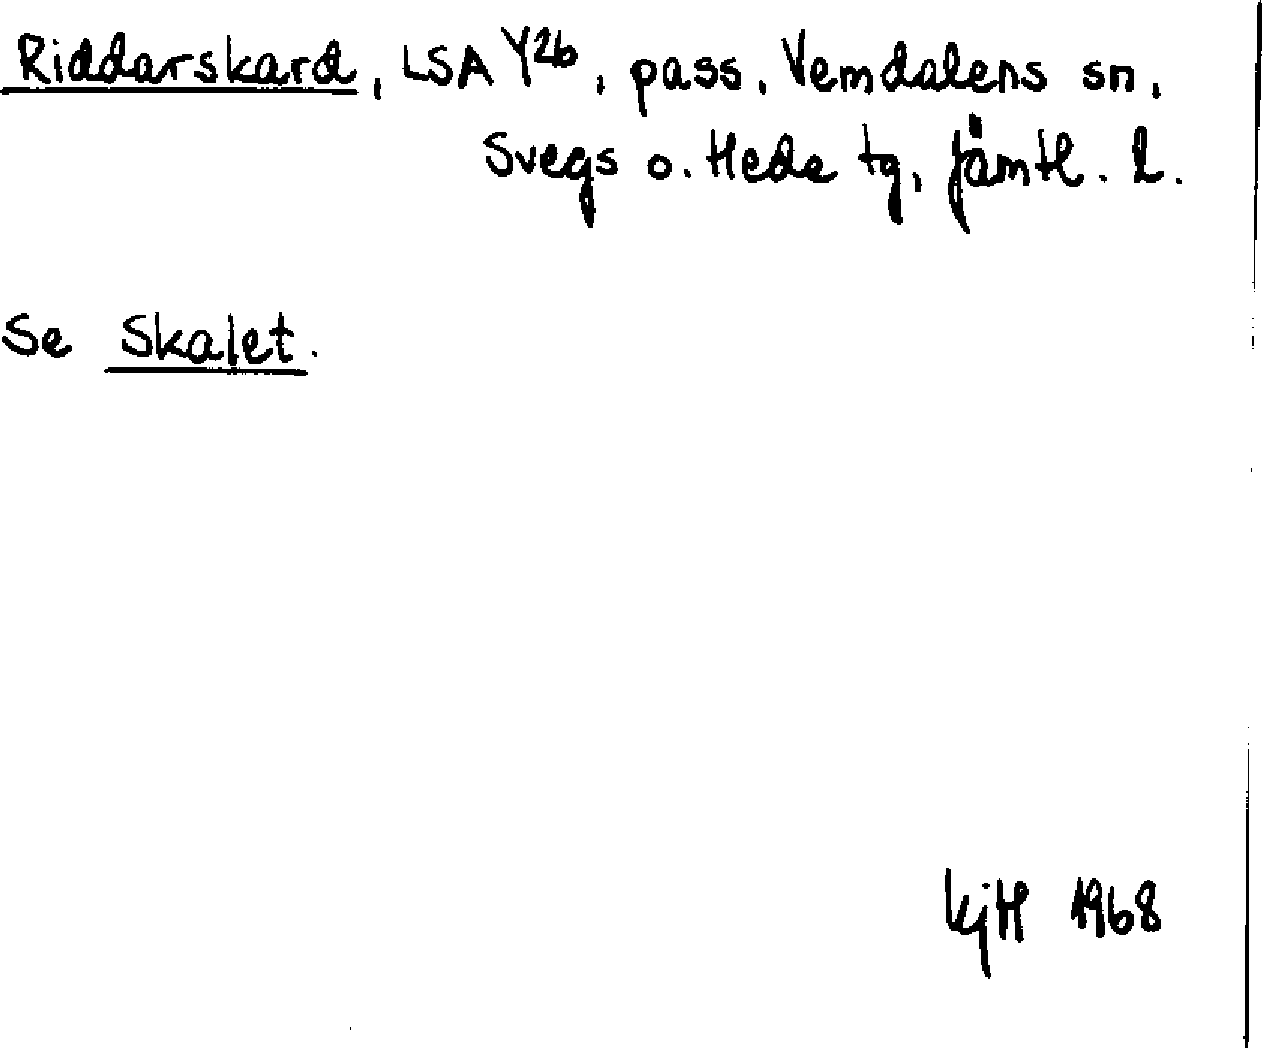 Riddarskard, LSA Y2b, pass. Vemdalens sn,
Svegs o. Hede tg, Jämtl. l.
Se Skalet.
KjH 1968